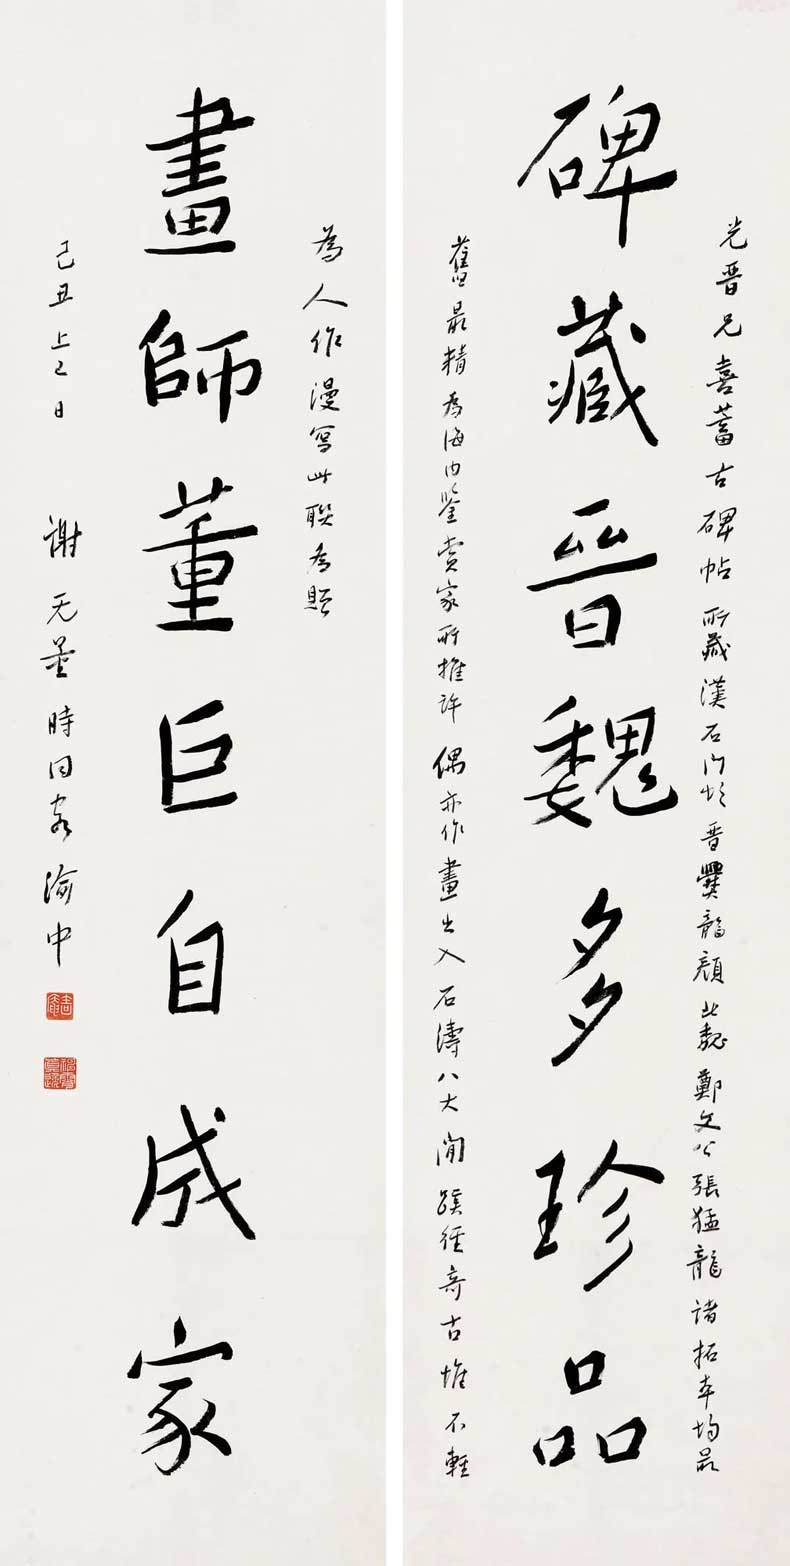 光晉兄喜蓄古碑帖所藏漢石門頌晉爨龍顏北魏鄭文公張猛龍諸拓本均最
碑藏晉魏多珍品
舊最精為海內鑒賞家所推許偶亦作畫出入石濤八大間蹊徑奇古惟不輕
為人作漫寫此聯為貽
畫師董巨自成家
己丑上巳日 謝无量時同客渝中